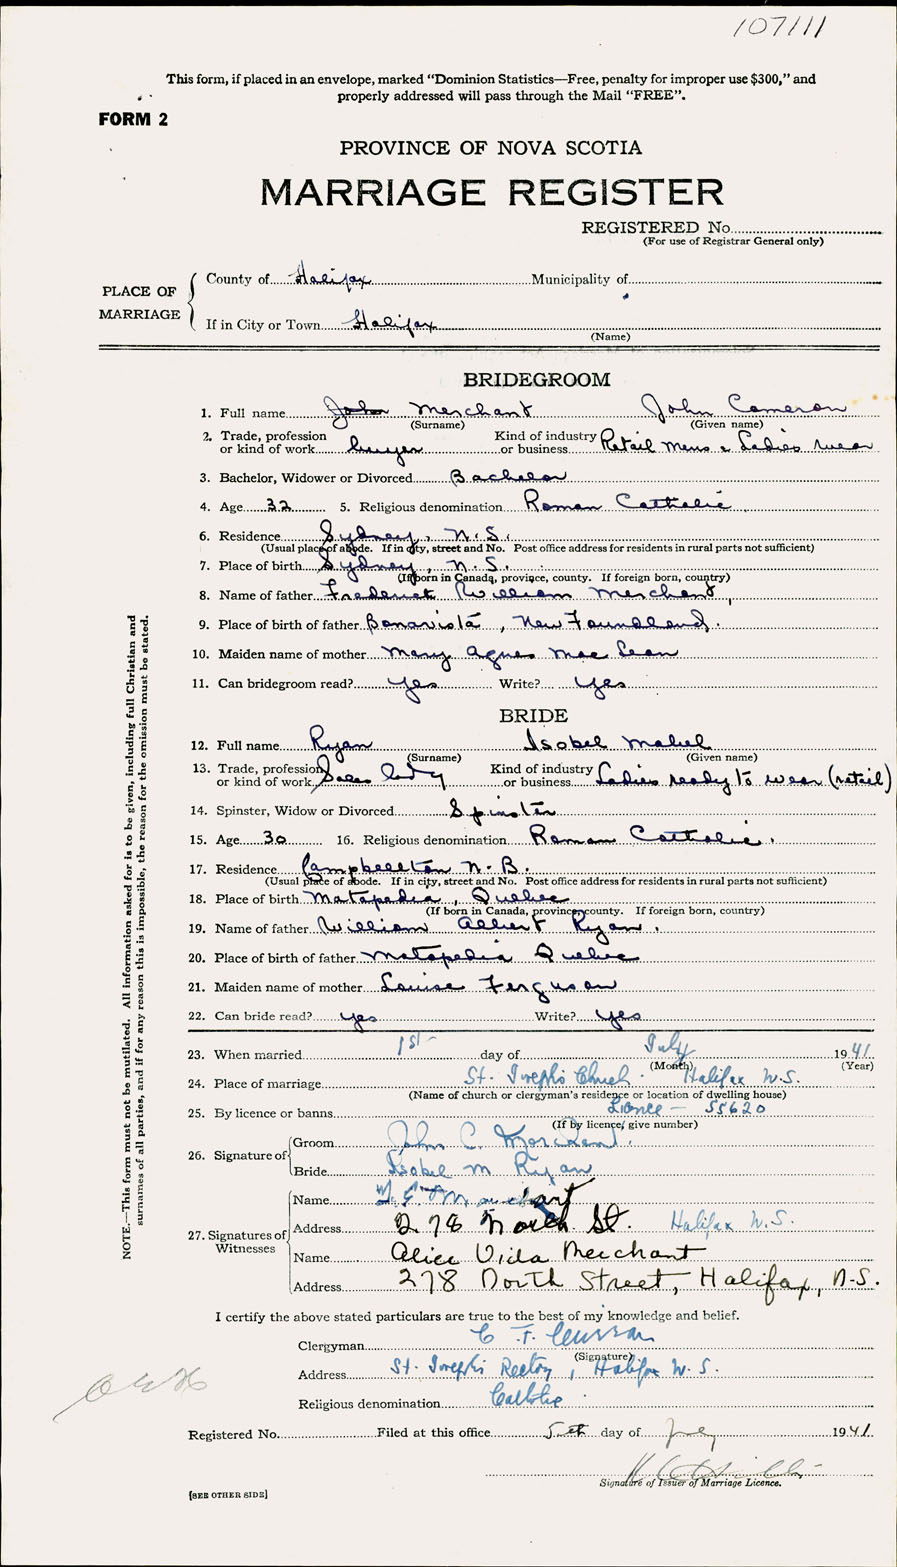 107111
This form, if placed in an envelope, marked "Dominion Statistics—Free, penalty for improper use $300," and
properly addressed will pass through the Mail "FREE".
FORM 2
PROVINCE OF NOVA SCOTIA
MARRIAGE REGISTER
REGISTERED No.
(For use of Registrar General only)
PLACE OF MARRIAGE
County of Halifax Municipality of
If in City or Town Halifax
(Name)
BRIDEGROOM
1. Full name John Merchant John Cameron
(Surname) (Given name)
2. Trade, profession or kind of work buyer Kind of industry or business Retail Mens & Ladies wear
3. Bachelor, Widower or Divorced Bachelor
4. Age 32 5. Religious denomination Roman Catholic
6. Residence Sydney, N.S.
(Usual place of abode. If in city, street and No. Post office address for residents in rural parts not sufficient)
7. Place of birth Sydney, N.S.
(If born in Canada, province, county. If foreign born, country)
8. Name of father Frederick William Merchant
9. Place of birth of father Bonavista, New Foundland.
10. Maiden name of mother Mary Agnes Mac Lean
11. Can bridegroom read? Yes Write? Yes
BRIDE
12. Full name Ryan Isobel Mabel
(Surname) (Given name)
13. Trade, profession or kind of work Sales lady Kind of industry or business Ladies ready to wear (retail)
14. Spinster, Widow or Divorced Spinster
15. Age 30 16. Religious denomination Roman Catholic.
17. Residence Campbellton N.B.
(Usual place of abode. If in city, street and No. Post office address for residents in rural parts not sufficient)
18. Place of birth Matapedia, Quebec
(If born in Canada, province, county. If foreign born, country)
19. Name of father William Albert Ryan.
20. Place of birth of father Matapedia Quebec
21. Maiden name of mother Louise Ferguson
22. Can bride read? Yes Write? Yes
23. When married 1st day of July 1941
(Month) (Year)
24. Place of marriage St. Joseph's Church. Halifax N.S.
(Name of church or clergyman's residence or location of dwelling house)
25. By licence or banns Licence — 55620
(If by licence, give number)
26. Signature of
Groom John C. Merchant.
Bride Isobel M Ryan
27. Signatures of Witnesses
Name
Address 278 North St. Halifax N.S.
Name Alice Vida Merchant
Address 278 North Street, Halifax, N.S.
I certify the above stated particulars are true to the best of my knowledge and belief.
Clergyman C. F. Curran
(Signature)
Address St. Joseph's Rectory, Halifax N.S.
Religious denomination Catholic
Registered No. Filed at this office 5th day of July 1941
Signature of Issuer of Marriage Licence.
[SEE OTHER SIDE]
NOTE.—This form must not be mutilated. All information asked for is to be given, including full Christian and
surnames of all parties, and if for any reason this is impossible, the reason for the omission must be stated.